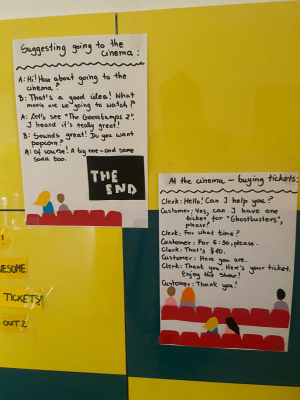 Suggesting going to the
cinema:
A: Hi! How about going to the
cinema?
B: That's a good idea! What
movie are we going to watch?
A: Let's see "The Goosebumps 2".
I heard it's really great!
B: Sounds great! Do you want
popcorn?
A: Of course! A big one-and some
soda too.
THE
END
At the cinema – buying tickets:
Clerk: Hello! Can I help you?
Customer: Yes, can I have one
ticket for "Ghostbusters",
please?
Clerk: For what time?
Customer: For 6:30, please.
Clerk: That's $10.
Customer: Here you are.
Clerk: Thank you. Here's your ticket.
Enjoy the show!
Customer: Thank you!
TICKETS
OUT 2